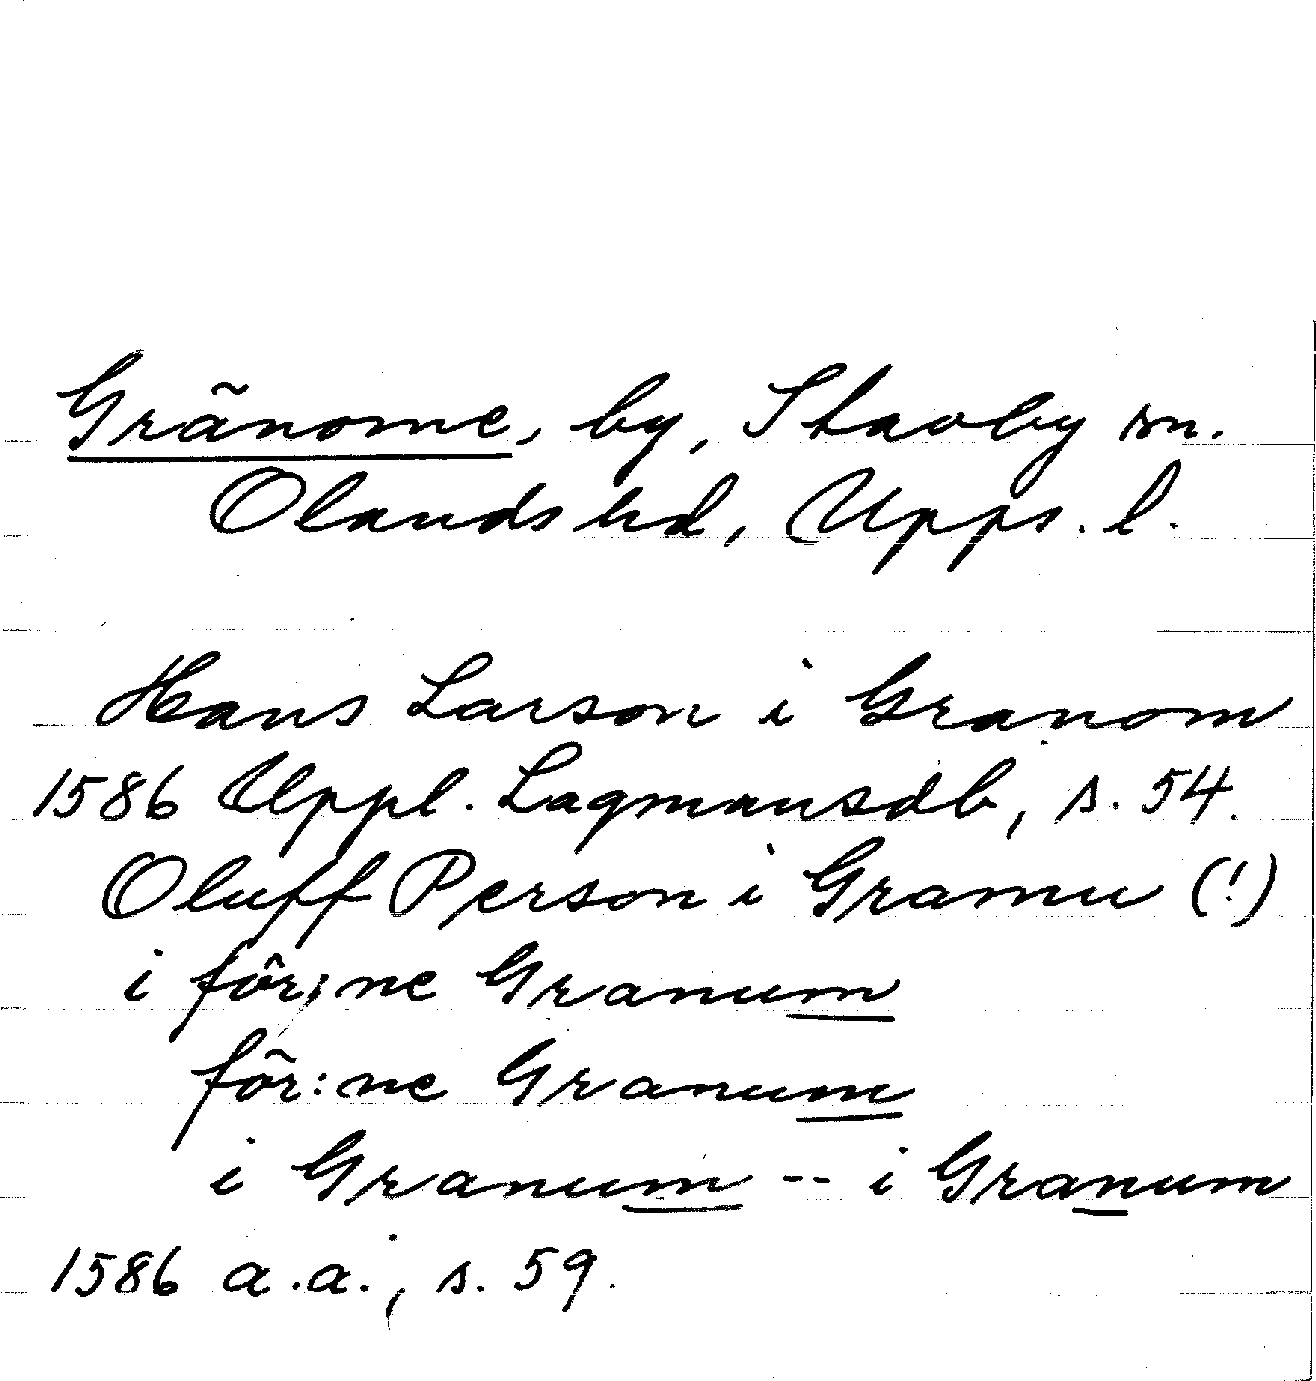 Gränome, by, Stavby sn.
Olands hd, Upps. l.
Hans Larson i Granom
1586 Uppl. Lagmansdb, s. 54.
Oluff Person i Gramu (!)
i för:ne Granum
för:ne Granum
i Granum -- i Granum
1586 a.a., s. 59.